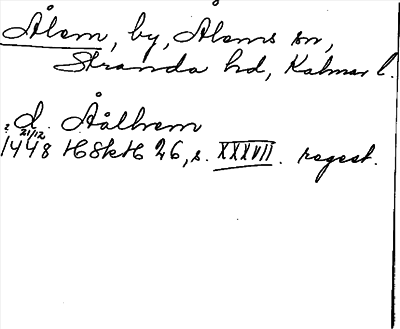 Ålem, by, Ålems sn,
Stranda hd, Kalmar l.
? d. Aålhem
21/12
1448 HSkH 26, s. XXXVII. regest.